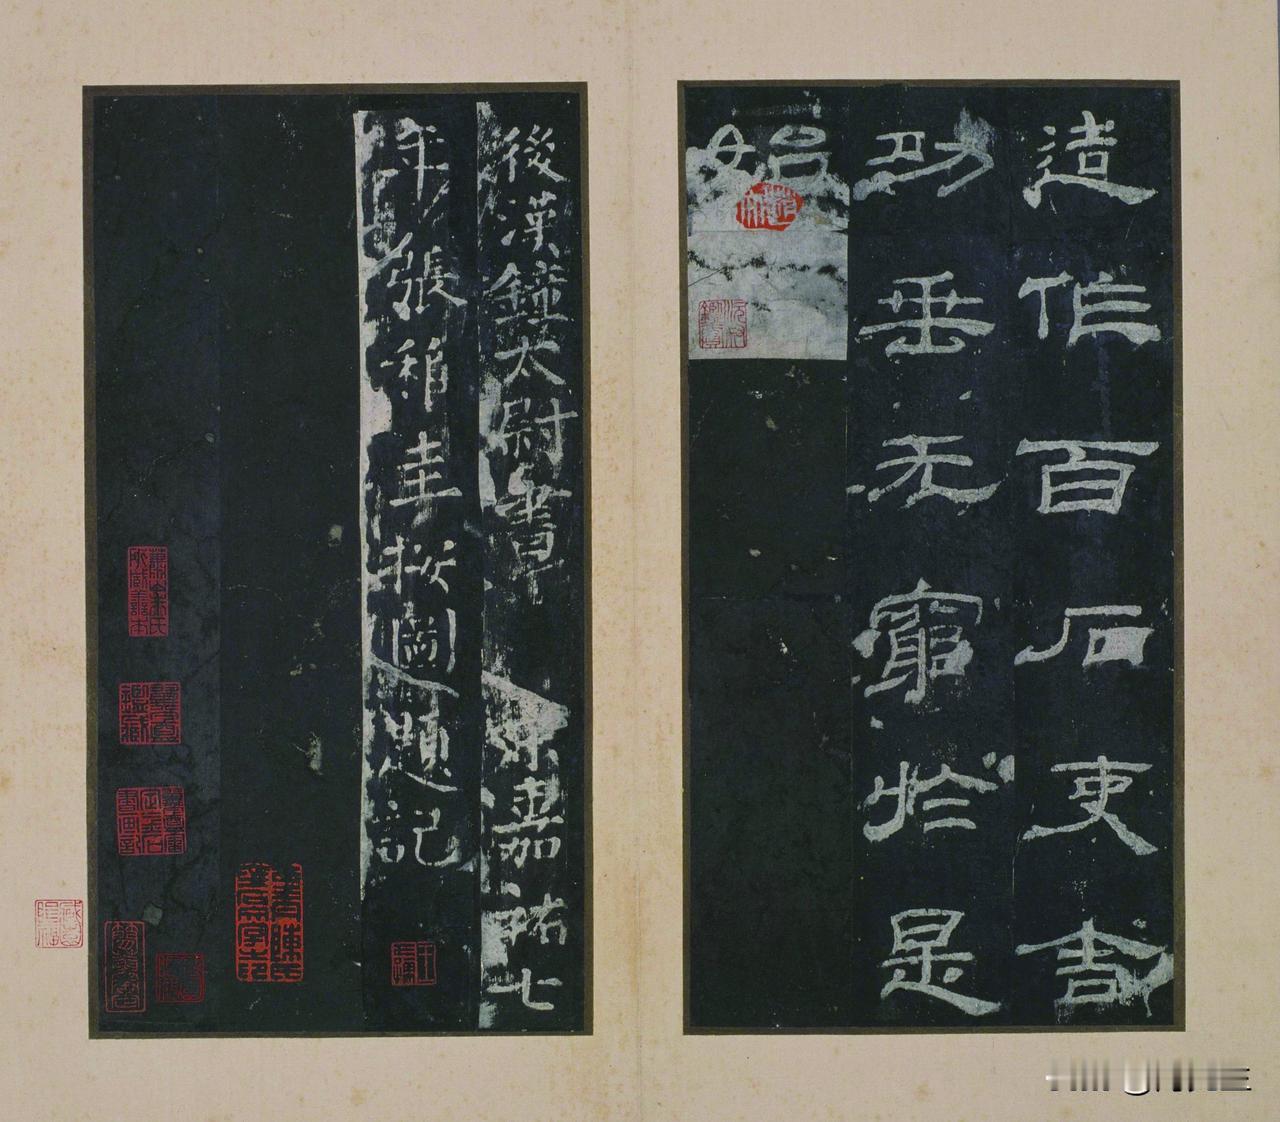 造作百石吏舍
功垂无窮於是
始
後漢鍾太尉書 宋嘉祐七
年張稚圭按圖題記